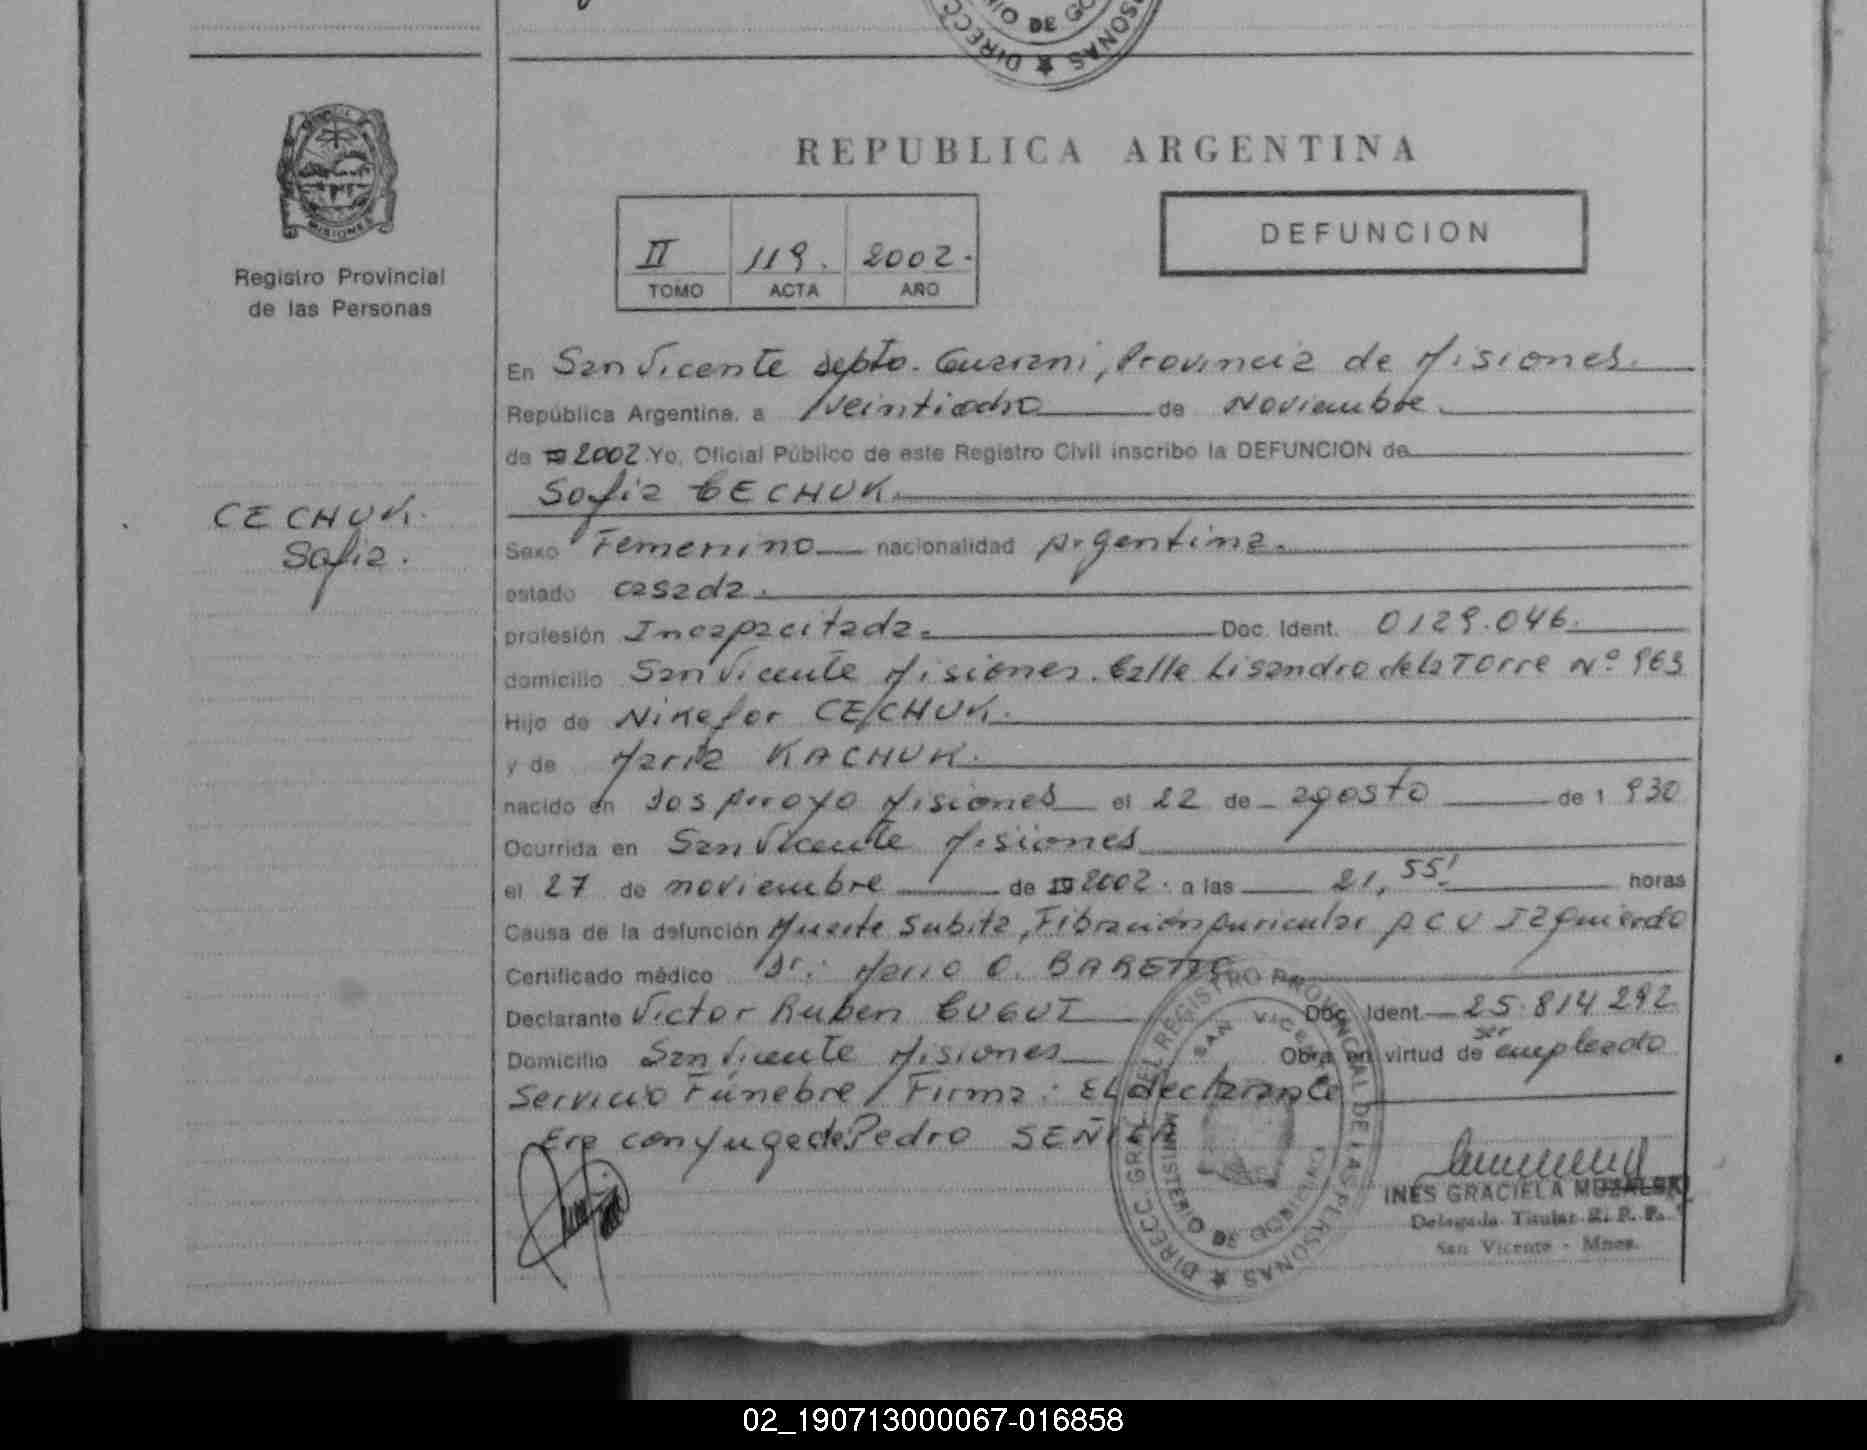 DE GO
DIRECC
SONAS
REPUBLICA ARGENTINA
MISIONES
Registro Provincial
de las Personas
II 119. 2002.
TOMO ACTA AÑO
DEFUNCION
En San Vicente Depto. Guarani, Provincia de Misiones.
República Argentina, a veintiocho de Noviembre.
de 19 2002 Yo, Oficial Público de este Registro Civil inscribo la DEFUNCION de
Sofia CECHUK.
CECHUK.
Sofia.
Sexo Femenino nacionalidad Argentina.
estado casada.
profesión Incapacitada. Doc. Ident. 0129.046.
domicilio San Vicente Misiones. Calle Lisandro de la Torre Nº 963
Hijo de Nikefor CECHUK.
y de Maria KACHUK.
nacido en Dos Arroyo Misiones el 22 de agosto de 1 930
Ocurrida en San Vicente Misiones
el 27 de noviembre de 19 2002. a las 21,55' horas
Causa de la defunción Muerte Subita, Fibracion Auricular ACV Izquierdo
Certificado médico Dr.: Mario O.
Declarante Victor Ruben Doc. Ident. 25.814.292
Domicilio San Vicente Misiones Obra en virtud de ser empleado
Servicio Fúnebre Firma: El declarante
Era conyuge de Pedro
DIRECC. GRAL. DEL REGISTRO PROVINCIAL DE LAS PERSONAS
SAN VICENTE
MINISTERIO DE GOBIERNO
INES GRACIELA
Delegada Titular R. P. P.
San Vicente - Mnes.
02_190713000067-016858